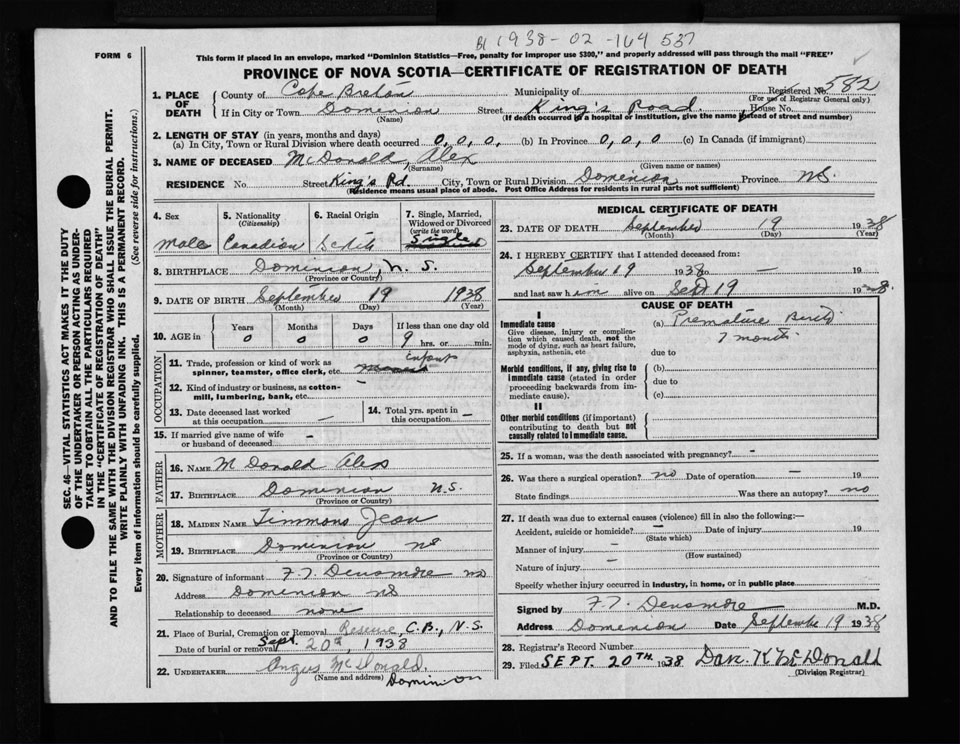 1938-02-164537
FORM 6
This form if placed in an envelope, marked "Dominion Statistics—Free, penalty for improper use $300," and properly addressed will pass through the mail "FREE"
PROVINCE OF NOVA SCOTIA—CERTIFICATE OF REGISTRATION OF DEATH
SEC. 46—VITAL STATISTICS ACT MAKES IT THE DUTY
OF THE UNDERTAKER OR PERSON ACTING AS UNDER-
TAKER TO OBTAIN ALL THE PARTICULARS REQUIRED
IN THE "CERTIFICATE OF REGISTRATION OF DEATH"
AND TO FILE THE SAME WITH THE DIVISION REGISTRAR WHO SHALL ISSUE THE BURIAL PERMIT.
WRITE PLAINLY WITH UNFADING INK. THIS IS A PERMANENT RECORD.
Every item of information should be carefully supplied. (See reverse side for instructions.)
1. PLACE OF DEATH County of Cape Breton Municipality of Registered No. 582
(For use of Registrar General only)
If in City or Town Dominion Street King's Road House No.
(Name) (If death occurred in a hospital or institution, give the name instead of street and number)
2. LENGTH OF STAY (in years, months and days)
(a) In City, Town or Rural Division where death occurred 0, 0, 0, (b) In Province 0, 0, 0 (c) In Canada (if immigrant)
3. NAME OF DECEASED McDonald, Alex
(Surname) (Given name or names)
RESIDENCE No. Street King's Rd. City, Town or Rural Division Dominion Province N.S.
(Residence means usual place of abode. Post Office Address for residents in rural parts not sufficient)
4. Sex 5. Nationality 6. Racial Origin 7. Single, Married,
(Citizenship) Widowed or Divorced
(write the word)
Male Canadian Scotch Single
8. BIRTHPLACE Dominion, N. S.
(Province or Country)
9. DATE OF BIRTH September 19 1938
(Month) (Day) (Year)
10. AGE in Years Months Days If less than one day old
0 0 0 9 hrs. or min.
OCCUPATION
11. Trade, profession or kind of work as
spinner, teamster, office clerk, etc. Infant
12. Kind of industry or business, as cotton-
mill, lumbering, bank, etc. –
13. Date deceased last worked
at this occupation –
14. Total yrs. spent in
this occupation –
15. If married give name of wife
or husband of deceased –
FATHER
16. NAME McDonald Alex
17. BIRTHPLACE Dominion N.S.
(Province or Country)
MOTHER
18. MAIDEN NAME Timmons Jean
19. BIRTHPLACE Dominion NS
(Province or Country)
20. Signature of informant F. T. Densmore MD
Address Dominion NS
Relationship to deceased none
21. Place of Burial, Cremation or Removal Reserve, C.B., N.S.
Date of burial or removal Sept. 20th, 1938
22. UNDERTAKER Angus McDonald.
(Name and address) Dominion
MEDICAL CERTIFICATE OF DEATH
23. DATE OF DEATH September 19 1938
(Month) (Day) (Year)
24. I HEREBY CERTIFY that I attended deceased from:
September 19 1938 to – 19
and last saw him alive on Sept 19 1938.
CAUSE OF DEATH
I
Immediate cause
Give disease, injury or complica-
tion which caused death, not the
mode of dying, such as heart failure,
asphyxia, asthenia, etc
(a) Premature Birth
7 months
due to
Morbid conditions, if any, giving rise to
immediate cause (stated in order
proceeding backwards from im-
mediate cause).
(b)
due to
(c)
II
Other morbid conditions (if important)
contributing to death but not
causally related to immediate cause.
25. If a woman, was the death associated with pregnancy? –
26. Was there a surgical operation? no Date of operation – 19
State findings Was there an autopsy? no
27. If death was due to external causes (violence) fill in also the following:—
Accident, suicide or homicide? – Date of injury 19
(State which)
Manner of injury
(How sustained)
Nature of injury –
Specify whether injury occurred in industry, in home, or in public place
Signed by F. T. Densmore M.D.
Address Dominion Date September 19 1938
28. Registrar's Record Number
29. Filed SEPT. 20TH. 1938 Dan. K. McDonald
(Division Registrar)